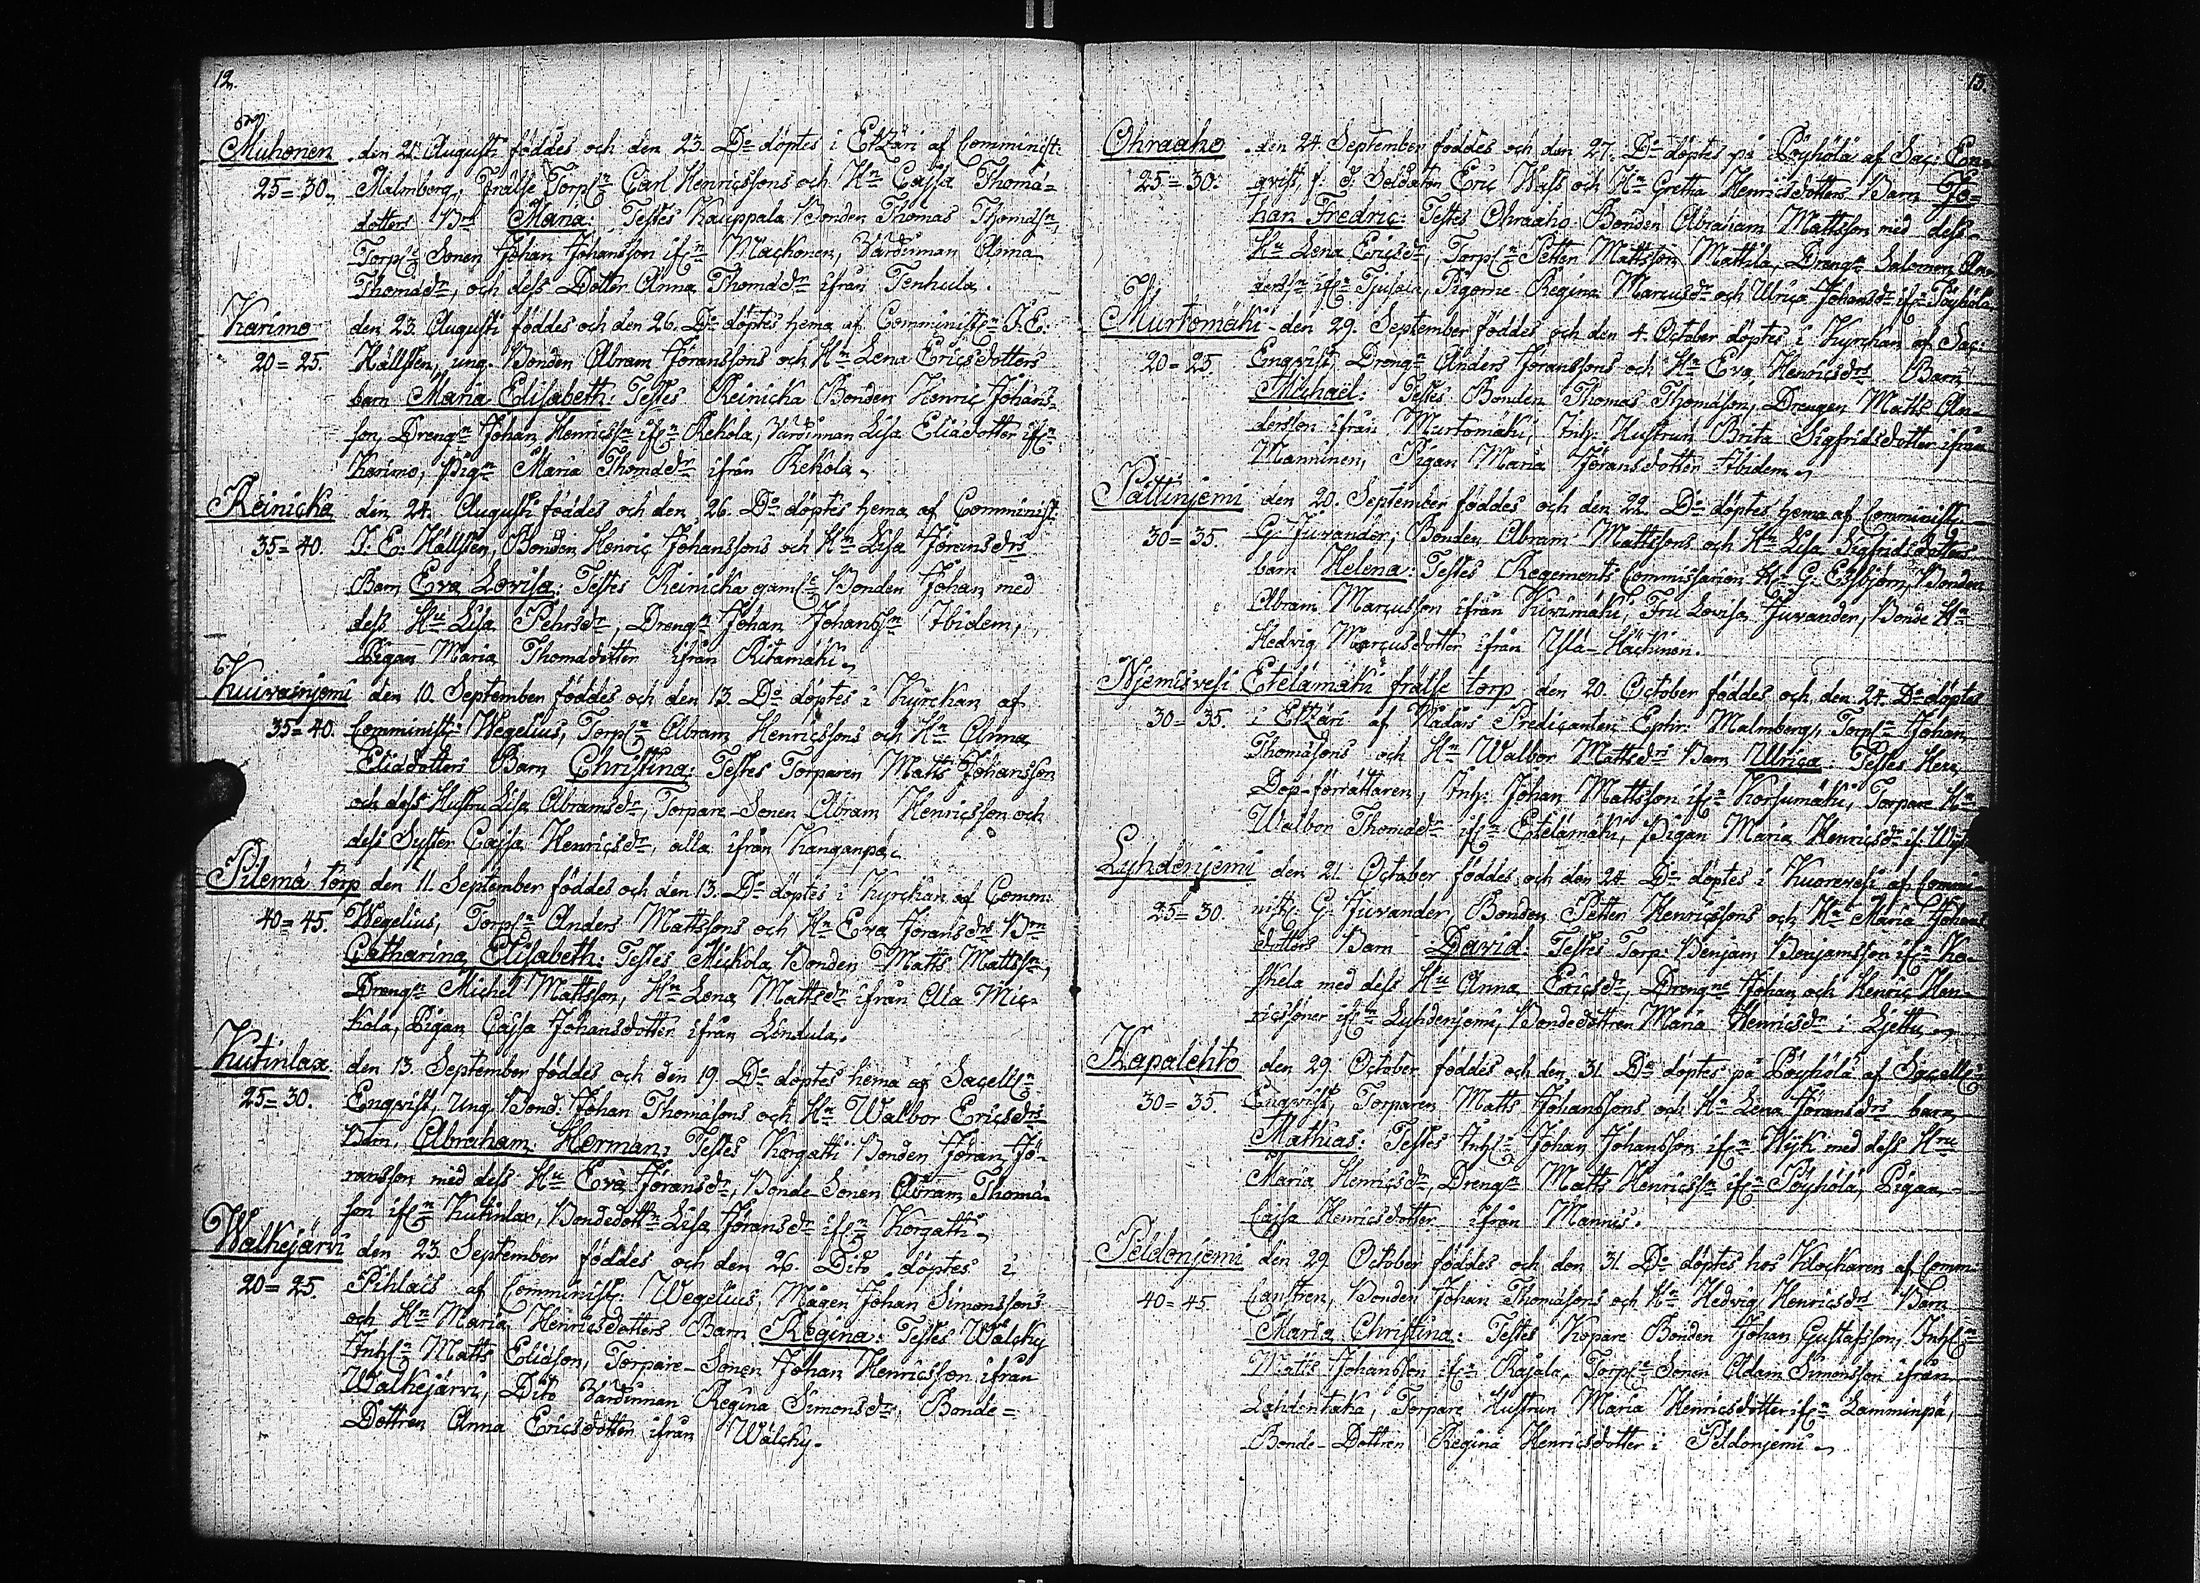 12.
Muhonen den 21. Augusti föddes och den 23. Do döptes i Etzäri af Comminist:
25=30. Malmberg, Frälse Torpn Carl Henricssons och Hn Cajsa Thomæ-
dotters Bn Maria: Testes Kauppala Bonden Thomas Thomæsn,
Torp: Sonen Johan Johansson ifn Machonen, Värdinnan Anna
Thomædr, och dess Dotter Anna Thomædr ifrån Tenhula.
Karimo den 23. Augusti föddes och den 26. Do döptes hema af Comministr J. E.
20=25. Hällsten, ung. Bonden Abram Jöranssons och Hn Lena Ericsdotters
barn Maria Elisabeth: Testes Reinicka Bonden Henric Johans-
son, Drengn Johan Henricssn ifn Rekola, Värdinnan Lisa Eliædotter ifn
Karimo, Pign Maria Thomædr ifrån Rekola.
Reinicka den 24. Augusti föddes och den 26. Do döptes hema af Comminist:
35=40. J. E. Hällsten, Bonden Henric Johanssons och Hn Lisa Jöransdrs
Barn Eva Lovisa: Testes Reinicka gaml: Bonden Johan med
dess Hu Lisa Pehrsdr, Drengn Johan Johanssn Ibidem,
Pigan Maria Thomædotter ifrån Ritamäki.
Kuivainjemi den 10. September föddes och den 13. Do döptes i Kyrckan af
35=40. Comminist: Wegelius, Torpn Abram Henricssons och Hn Anna
Eliædotters Barn Christina: Testes Torparen Matts Johansson
och dess Hustru Lisa Abramsdr, Torpare-Sonen Abram Henricsson och
dess Syster Cajsa Henricsdr, alla ifrån Kanganpä.
Pilemä torp den 11. September föddes och den 13. Do döptes i Kyrckan af Comm:
40=45. Wegelius, Torpn Anders Mattssons och Hn Eva Jöransdrs Brn
Catharina Elisabeth: Testes Mickola Bonden Matts Mattssn,
Drengn Michel Mattsson, Hn Lena Mattsdr ifrån Ala Mic-
kola, Pigan Cajsa Johansdotter ifrån Lendula.
Kutinlax den 13. September föddes och den 19. Do döptes hema af Sacelln
25=30. Enqvist, Ung. Bond. Johan Thomæsons och Hn Walbor Ericsdrs
Barn, Abraham Herman: Testes Korgatti Bonden Jöran Jö-
ransson med dess Hu Eva Jöransdr, Bonde Sonen Abram Thomæ-
son ifn Kutinlax, Bondedottn Lisa Jöransdr ifn Korgatti.
Walkejärvi den 23. September föddes och den 26. Dito döptes i
20=25. Pihlais af Comminist: Wegelius, Mågen Johan Simonssons
och Hn Maria Henricsdotters Barn Regina: Testes Wälcky
Inhn Matts Eliæson, Torpare-Sonen Johan Henricsson ifrån
Walkejärvi, Dito Värdinnan Regina Simonsdr, Bonde=
Dottren Anna Ericsdotter ifrån Wälcky.
13.
Ohraaho den 24. September föddes och den 27. Do döptes på Pöyhölä af Sac: En-
25=30. qvist, Soldaten Eric Wass och Hn Gretha Henricsdotters Barn Jo-
han Fredric: Testes Ohraaho Bonden Abraham Mattsson med dess
Hu Lena Ericsdr, Torpn Petter Mattsson Mattila, Drengn Salomon An-
derssn ifn Tjusala, Pigorne Regina Marcusdr och Ulrica Johansdr ifn Pöyhölä
Murtomäki den 29. September föddes och den 4. October döptes i Kyrckan af Sac:
20=25. Enqvist, Drengn Anders Jöranssons och Hn Eva Henricsdrs Barn
Michael: Testes Bonden Thomas Thomæson, Drengen Matts An-
dersson ifrån Murtomäki, Inh: Hustrun Brita Sigfridsdotter ifrån
Manninen, Pigan Maria Jöransdotter Ibidem.
Pättinjemi den 20. September föddes och den 22. Do döptes hema af Comminist:
30=35. G. Juvander, Bonden Abram Mattssons och Hn Lisa Sigfridsdotters
barn Helena: Testes Regements Commissarien Hr G. Essbjörn, Bonden
Abram Marcusson ifrån Kivimäki, Fru Lovisa Juvander, Bonde Hn
Hedvig Marcusdotter ifrån Ylä-Hackinen.
Njemisvesi Etelämäki frälse torp den 20. October föddes och den 24. Do döptes
30=35. i Etzäri af Nådårs Predicanten Ephr: Malmberg, Torpn Johan
Thomæsons och Hn Walbor Mattsdrs Barn Ulrica: Testes Herr
Dop-förrättaren, Inh: Johan Mattsson ifn Korsumäki, Torpare Hn
Walbor Thomædr ifn Etelämäki, Pigan Maria Henricsdr if:
Lyhdenjemi den 21. October föddes och den 24. Do döptes i Kuorevesi af Commi-
25=30. nist: G. Juvander, Bonden Petter Henricssons och Hn Maria Johans
dotters Barn David: Testes Torp: Benjam Benjamsson ifn Ko-
skela med dess Hu Anna Ericsdr, Drengne Johan och Henric Hen-
ricssöner ifn Lyhdenjemi, Bondedottren Maria Henricsdr i Ljettu.
Hapalehto den 29. October föddes och den 31. Do döptes på Pöyhölä af Sacelln
30=35. Enqvist, Torparen Matts Johanssons och Hn Lena Jöransdrs barn
Mathias: Testes Inhn Johan Johansson ifn Wijk med dess Hru
Maria Henricsdr, Drengn Matts Henricssn ifn Pöyhölä, Pigan
Cajsa Henricsdotter ifrån Mannis.
Peldonjemi den 29. October föddes och den 31. Do döptes hos Klockaren af Comm:
40=45. Canstren, Bonden Johan Thomæsons och Hn Hedvig Henricsdrs Barn
Maria Christina: Testes Kopare Bonden Johan Gustafsson, Inhn
Matts Johansson ifn Rasala, Torp: Sonen Adam Simonsson ifrån
Lahdentaka, Torpare Hustrun Maria Henricsdotter ifn Lamminpä,
Bonde-Dottren Regina Henricsdotter i Peldonjemi.